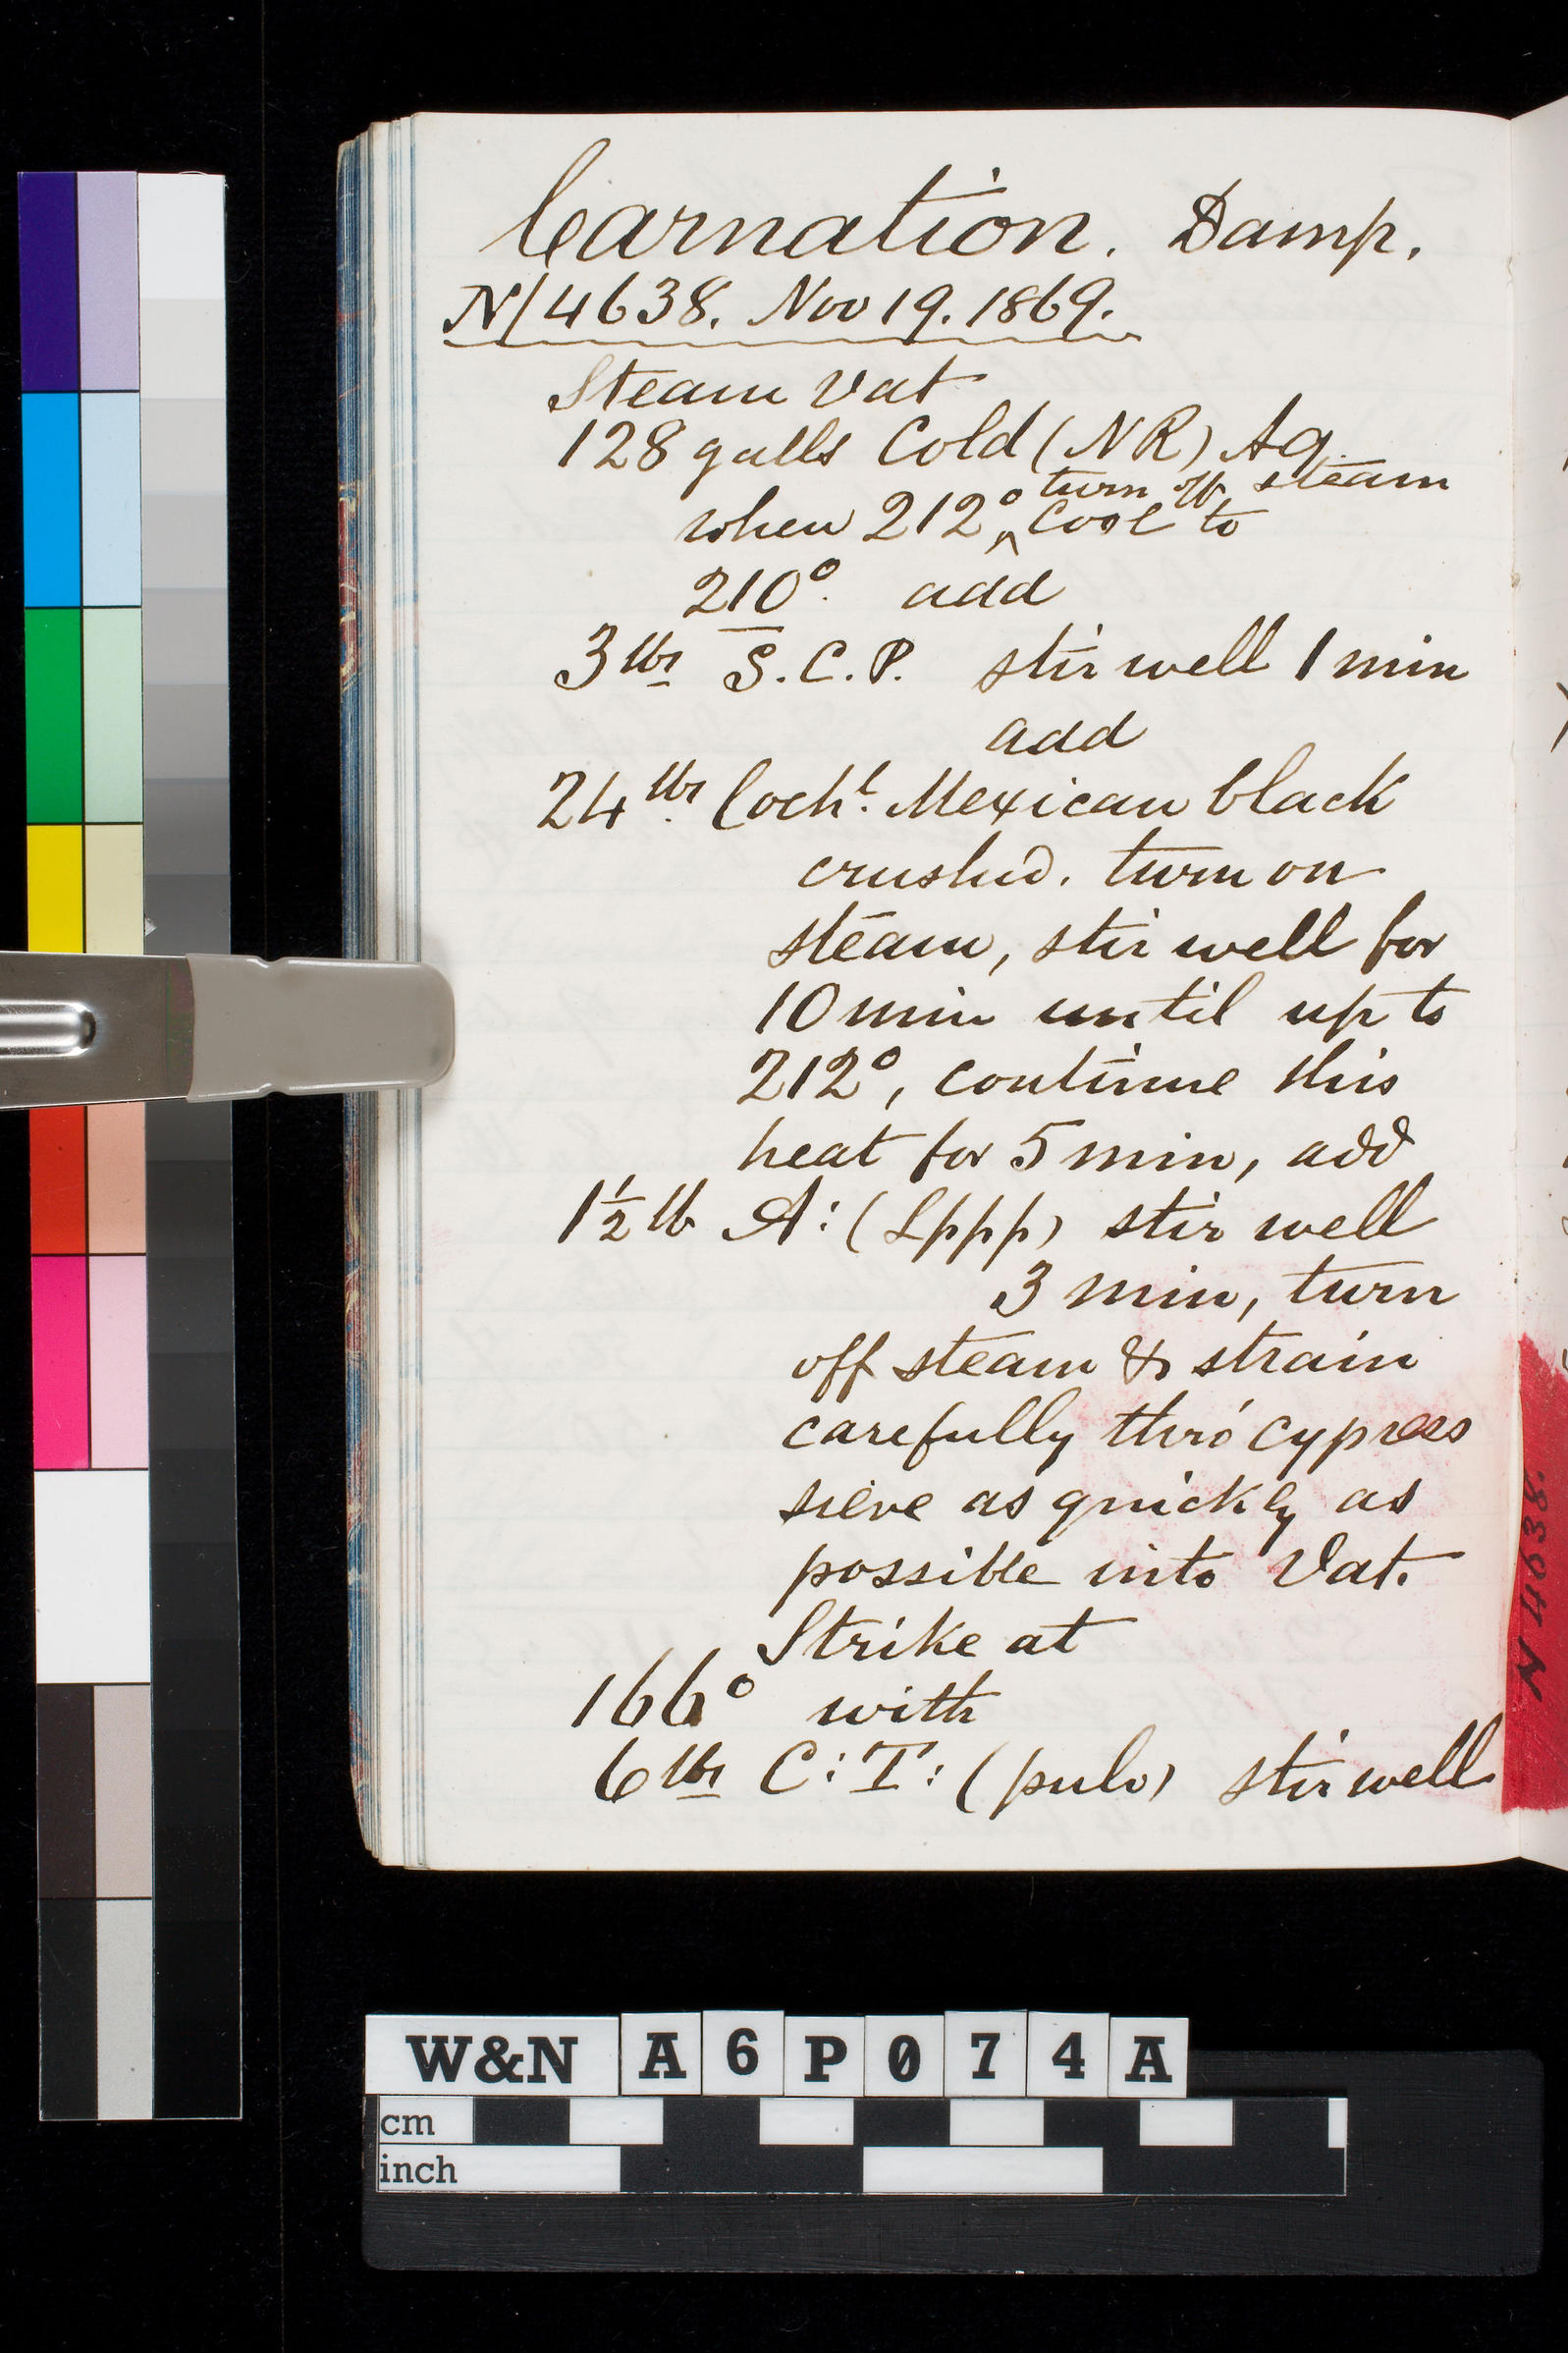 Carnation. Damp.
N/4638. Nov 19. 1869.
Steam Vat
128 galls Cold (NR) Aq.
turn off steam
when 212° ^ Cool to
210°. add
3 lbs S.C.P. stir well 1 min
add
24 lbs Cochl. Mexican black
crushed. turn on
steam, stir well for
10 min until up to
212°, continue this
heat for 5 min, add
1½ lb A: (Lppp) stir well
3 min, turn
off steam & strain
carefully thro' cypress
sieve as quickly as
possible into Vat.
Strike at
166° with
6 lbs C:T: (pulv) stir well
N 4638.
W&N A6P074A
cm
inch